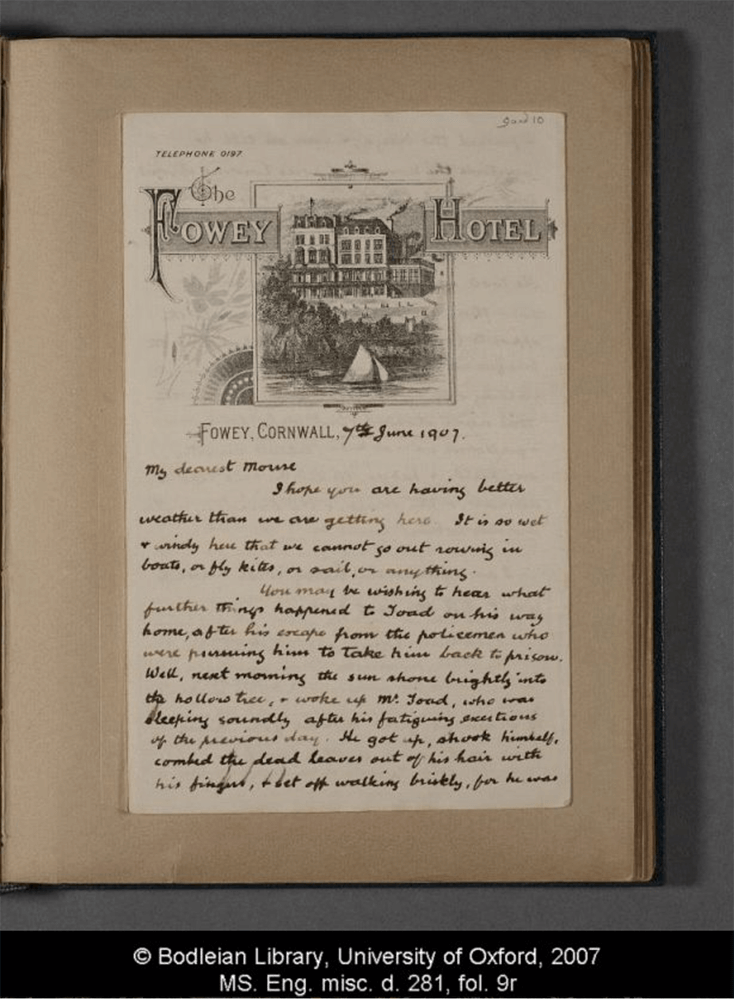 TELEPHONE 0197
The
FOWEY HOTEL
FOWEY, CORNWALL, 7th June 1907.
My dearest Mouse
I hope you are having better
weather than we are getting here. It is so wet
& windy here that we cannot go out rowing in
boats, or fly kites, or sail, or anything.
You may be wishing to hear what
further things happened to Toad on his way
home, after his escape from the policemen who
were pursuing him to take him back to prison.
Well, next morning the sun shone brightly into
the hollow tree, & woke up Mr. Toad, who was
sleeping soundly after his fatiguing exertions
of the previous day. He got up, shook himself,
combed the dead leaves out of his hair with
his fingers, & set off walking briskly, for he was
© Bodleian Library, University of Oxford, 2007
MS. Eng. misc. d. 281, fol. 9r